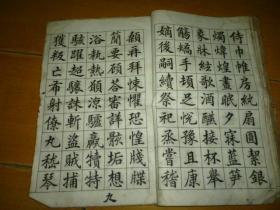 侍巾帷房紈扇圓絜銀
燭煒煌晝眠夕寐藍筍
象牀絃歌酒讌接杯舉
觴矯手頓足悅豫且康
嫡後嗣續祭祀蒸嘗稽
顙再拜悚懼恐惶牋牒
簡要顧答審詳骸垢想
浴執熱願涼驢騾犢特
駭躍超驤誅斬盜賊捕
獲叛亡布射僚丸嵇琴
九